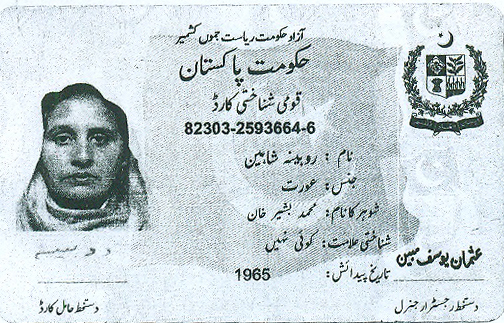 آزاد حکومت ریاست جموں کشمیر
حکومت پاکستان
قومی شناختی کارڈ
82303-2593664-6
نام : روبینہ شاہین
جنس: عورت
شوہر کا نام: محمد بشیر خان
شناختی علامت: کوئی نہیں
تاریخ پیدائش: 1965
عثمان یوسف مبین
دستخط حامل کارڈ
دستخط رجسٹرار جنرل